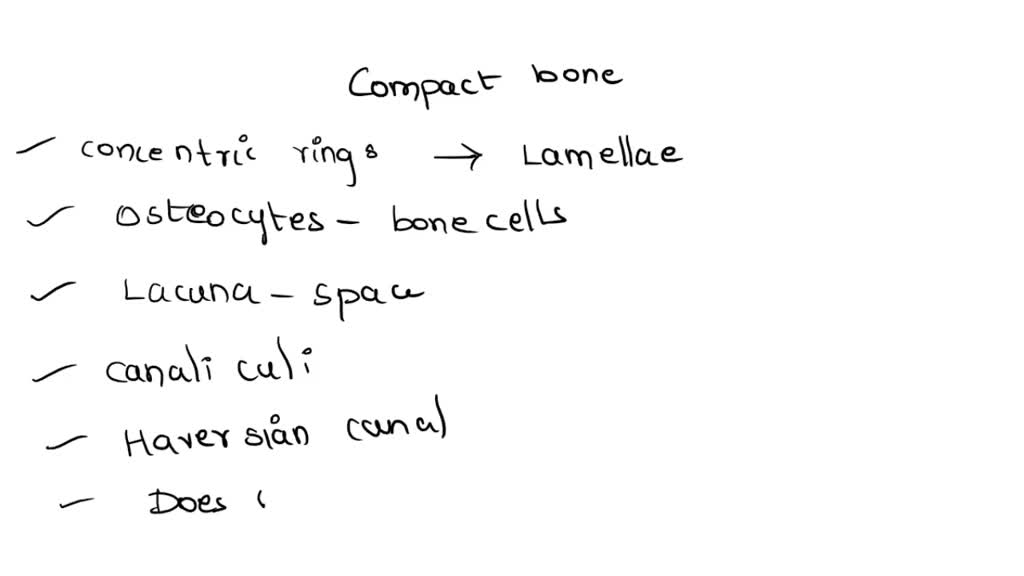 Compact bone
concentric rings → Lamellae
Osteocytes - bone cells
Lacuna - space
canali culi
Haversian canal
Does (